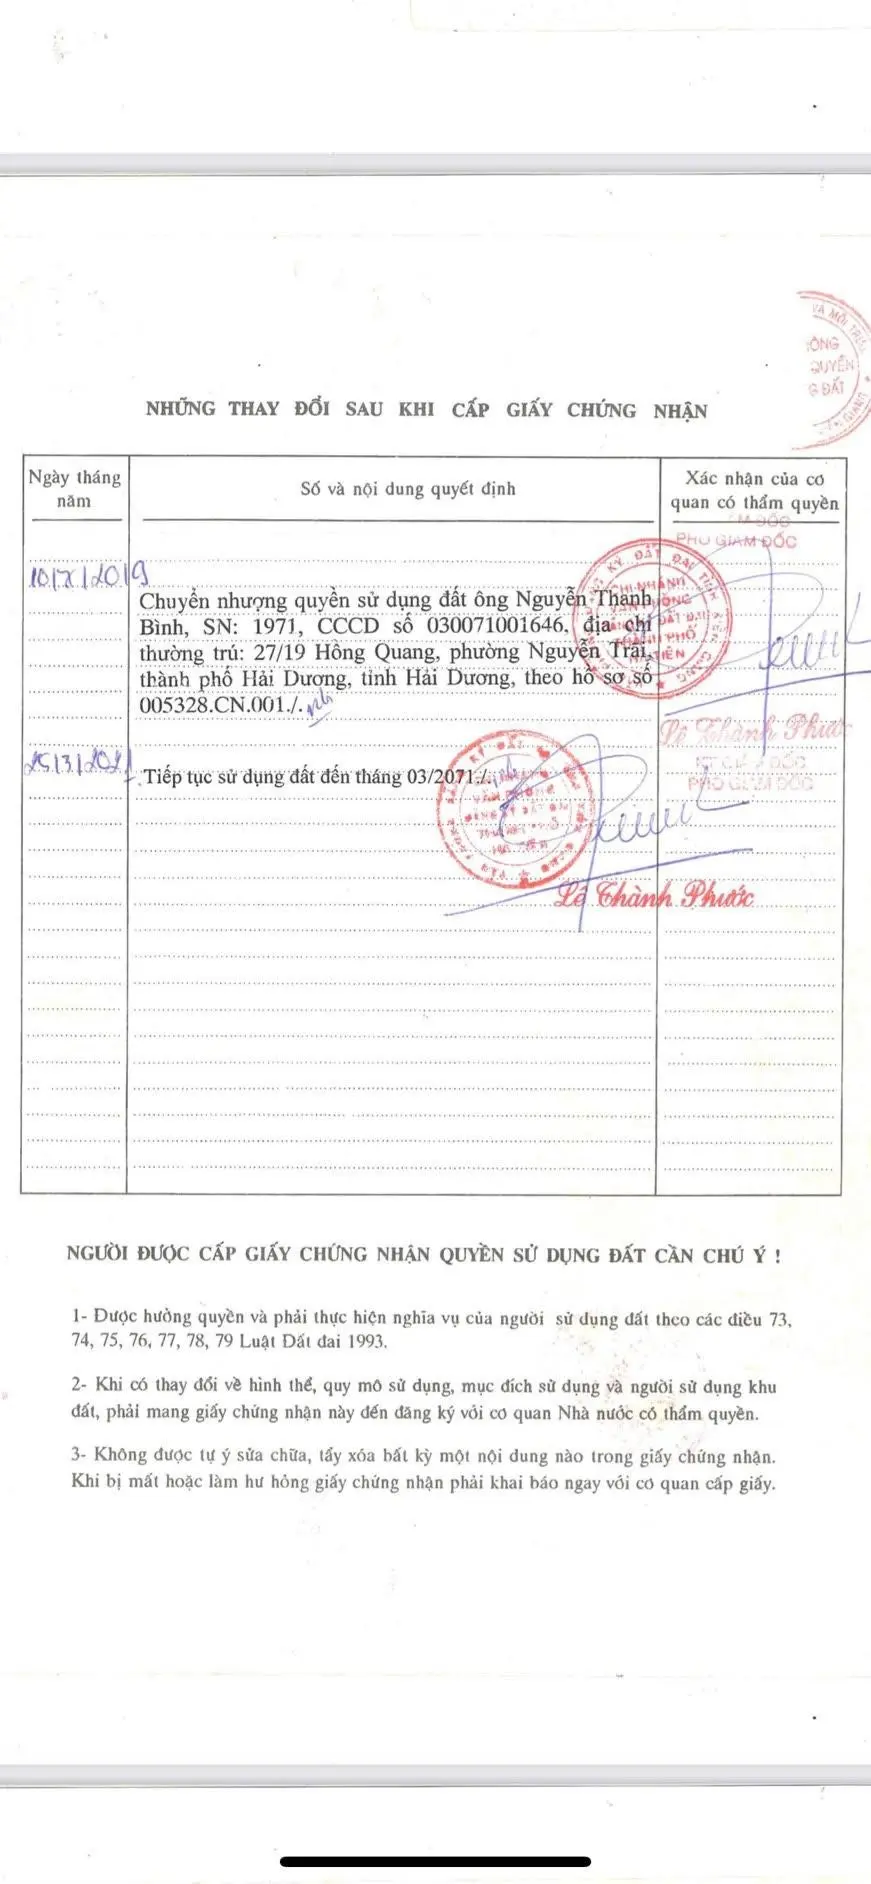 VÀ MÔI TRƯỜ
QUYỀN
G ĐẤT
NHỮNG THAY ĐỔI SAU KHI CẤP GIẤY CHỨNG NHẬN
Ngày tháng năm
Số và nội dung quyết định
Xác nhận của cơ quan có thẩm quyền
PHÓ GIÁM ĐỐC
10/7/2019
Chuyển nhượng quyền sử dụng đất ông Nguyễn Thanh
Bình, SN: 1971, CCCD số 030071001646. địa chỉ
thường trú: 27/19 Hồng Quang, phường Nguyễn Trãi,
thành phố Hải Dương, tỉnh Hải Dương, theo hồ sơ số
005328.CN.001./.
CHI NHÁNH
VĂN PHÒNG
ĐĂNG KÝ ĐẤT ĐAI
THÀNH PHỐ
HÀ TIÊN
Lê Thành Phước
25/3/2021
Tiếp tục sử dụng đất đến tháng 03/2071./.
KT GIÁM ĐỐC
PHÓ GIÁM ĐỐC
Lê Thành Phước
NGƯỜI ĐƯỢC CẤP GIẤY CHỨNG NHẬN QUYỀN SỬ DỤNG ĐẤT CẦN CHÚ Ý !
1- Được hưởng quyền và phải thực hiện nghĩa vụ của người sử dụng đất theo các điều 73,
74, 75, 76, 77, 78, 79 Luật Đất đai 1993.
2- Khi có thay đổi về hình thể, quy mô sử dụng, mục đích sử dụng và người sử dụng khu
đất, phải mang giấy chứng nhận này đến đăng ký với cơ quan Nhà nước có thẩm quyền.
3- Không được tự ý sửa chữa, tẩy xóa bất kỳ một nội dung nào trong giấy chứng nhận.
Khi bị mất hoặc làm hư hỏng giấy chứng nhận phải khai báo ngay với cơ quan cấp giấy.